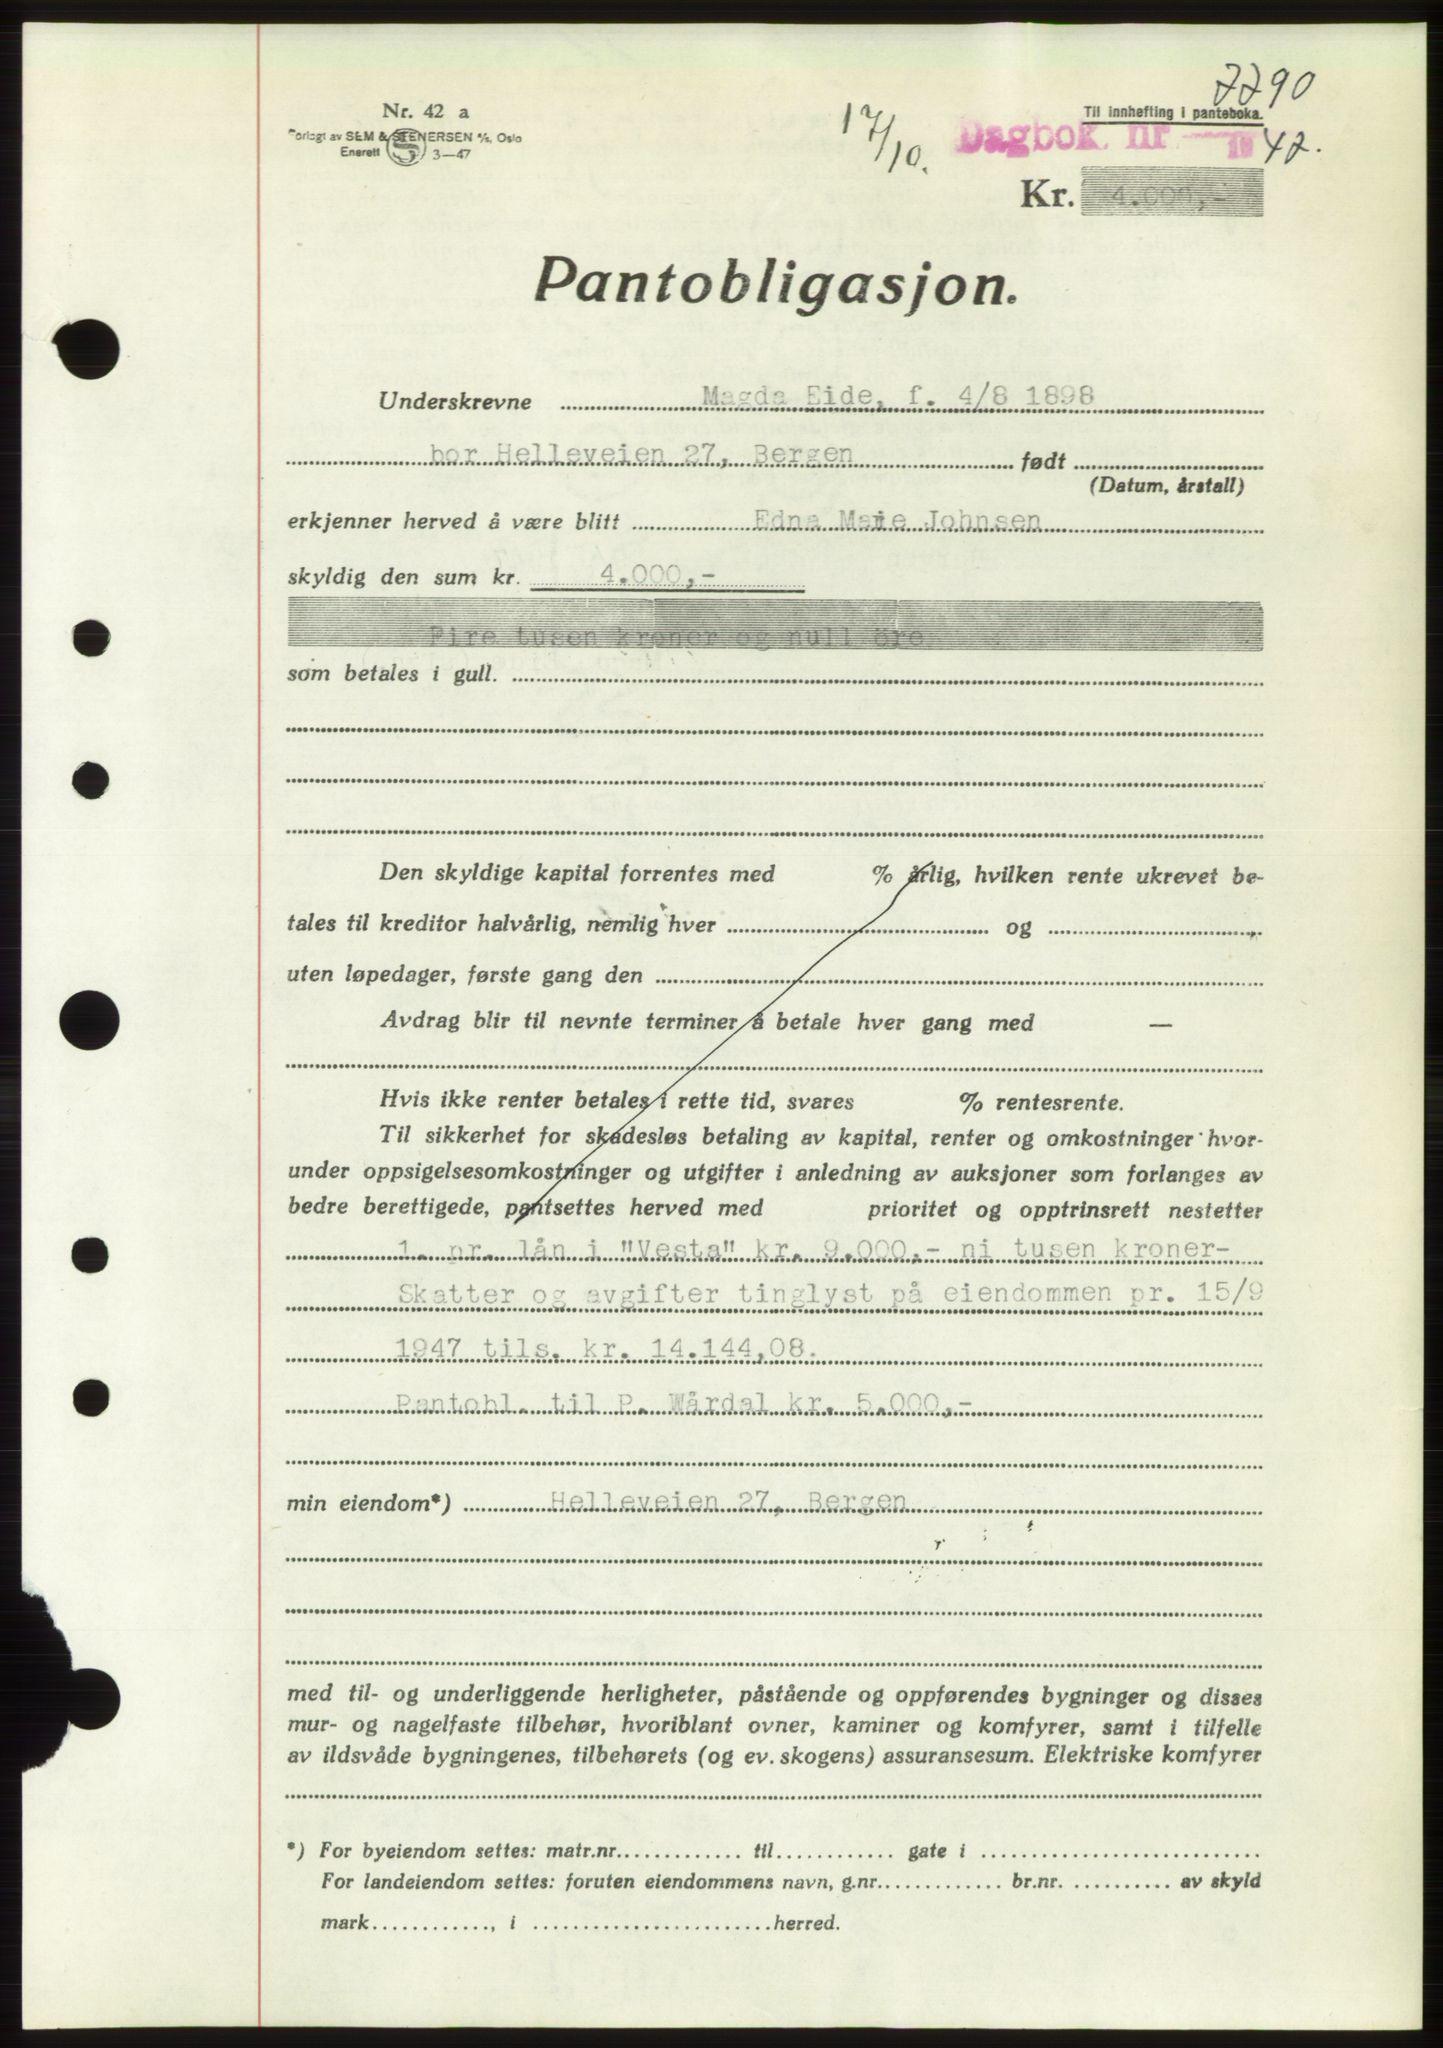 7290
Nr. 42 a
Til innhefting i panteboka.
Forlagt av SEM & STENERSEN A/S, Oslo
Enerett S 3—47
17/10.
Dagbok nr 19 47.
Kr. 4.000,-
Pantobligasjon.
Underskrevne Magda Eide, f. 4/8 1898
bor Helleveien 27, Bergen født
(Datum, årstall)
erkjenner herved å være blitt Edna Marie Johnsen
skyldig den sum kr. 4.000,-
Fire tusen kroner og null öre
som betales i gull.
Den skyldige kapital forrentes med % årlig, hvilken rente ukrevet be-
tales til kreditor halvårlig, nemlig hver og
uten løpedager, første gang den
Avdrag blir til nevnte terminer å betale hver gang med —
Hvis ikke renter betales i rette tid, svares % rentesrente.
Til sikkerhet for skadesløs betaling av kapital, renter og omkostninger hvor-
under oppsigelsesomkostninger og utgifter i anledning av auksjoner som forlanges av
bedre berettigede, pantsettes herved med prioritet og opptrinsrett nestetter
1. pr. lån i "Vesta" kr. 9.000,- ni tusen kroner-
Skatter og avgifter tinglyst på eiendommen pr. 15/9
1947 tils. kr. 14.144,08.
Pantobl. til P. Wårdal kr. 5.000,-
min eiendom*) Helleveien 27, Bergen
med til- og underliggende herligheter, påstående og oppførendes bygninger og disses
mur- og nagelfaste tilbehør, hvoriblant ovner, kaminer og komfyrer, samt i tilfelle
av ildsvåde bygningenes, tilbehørets (og ev. skogens) assuransesum. Elektriske komfyrer
*) For byeiendom settes: matr.nr. til gate i
For landeiendom settes: foruten eiendommens navn, g.nr. br.nr. av skyld
mark , i herred.